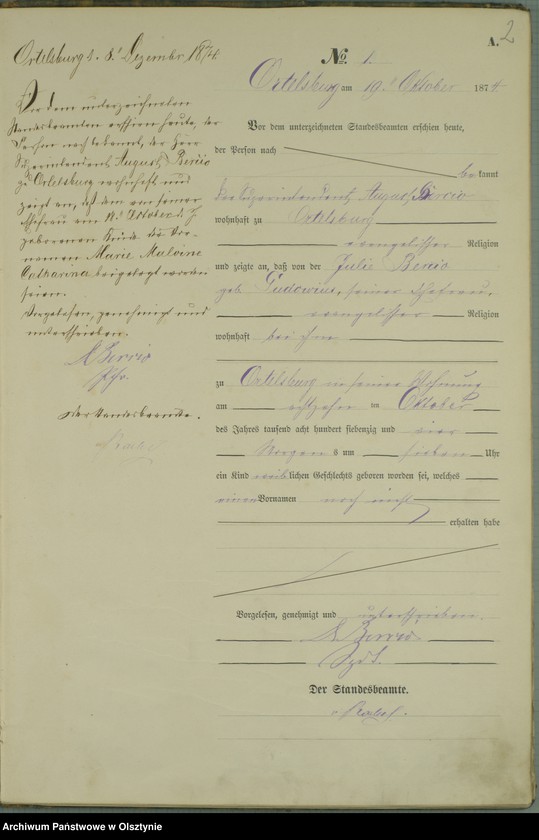 A. 2
№ 1.
Ortelsburg am 19. Oktober 1874.
Vor dem unterzeichneten Standesbeamten erschien heute,
der Person nach
bekannt,
der Superintendent August Bercio
wohnhaft zu Ortelsburg
evangelischer Religion
und zeigte an, daß von der Julie Bercio
geb. Gudovius, seiner Ehefrau,
evangelischer Religion
wohnhaft bei ihm
zu Ortelsburg in seiner Wohnung
am achtzehn ten Oktober
des Jahres tausend acht hundert siebenzig und vier
Morgens um sieben Uhr
ein Kind weiblichen Geschlechts geboren worden sei, welches
einen Vornamen noch nicht
erhalten habe
Vorgelesen, genehmigt und unterschrieben.
A Bercio
Der Standesbeamte.
Ortelsburg d. 8. Dezember 1874.
Vor dem unterzeichneten
Standesbeamten erschien heute, der
Person nach bekannt, der Herr
Superintendent August Bercio
zu Ortelsburg wohnhaft und
zeigt an, daß dem von seiner
Ehefrau am 18. Oktober d. J.
geborenen Kind die Vor-
namen Marie Malvine
Catharina beigelegt worden
seien.
Vorgelesen, genehmigt und
unterschrieben.
A Bercio
Der Standesbeamte.
Archiwum Państwowe w Olsztynie